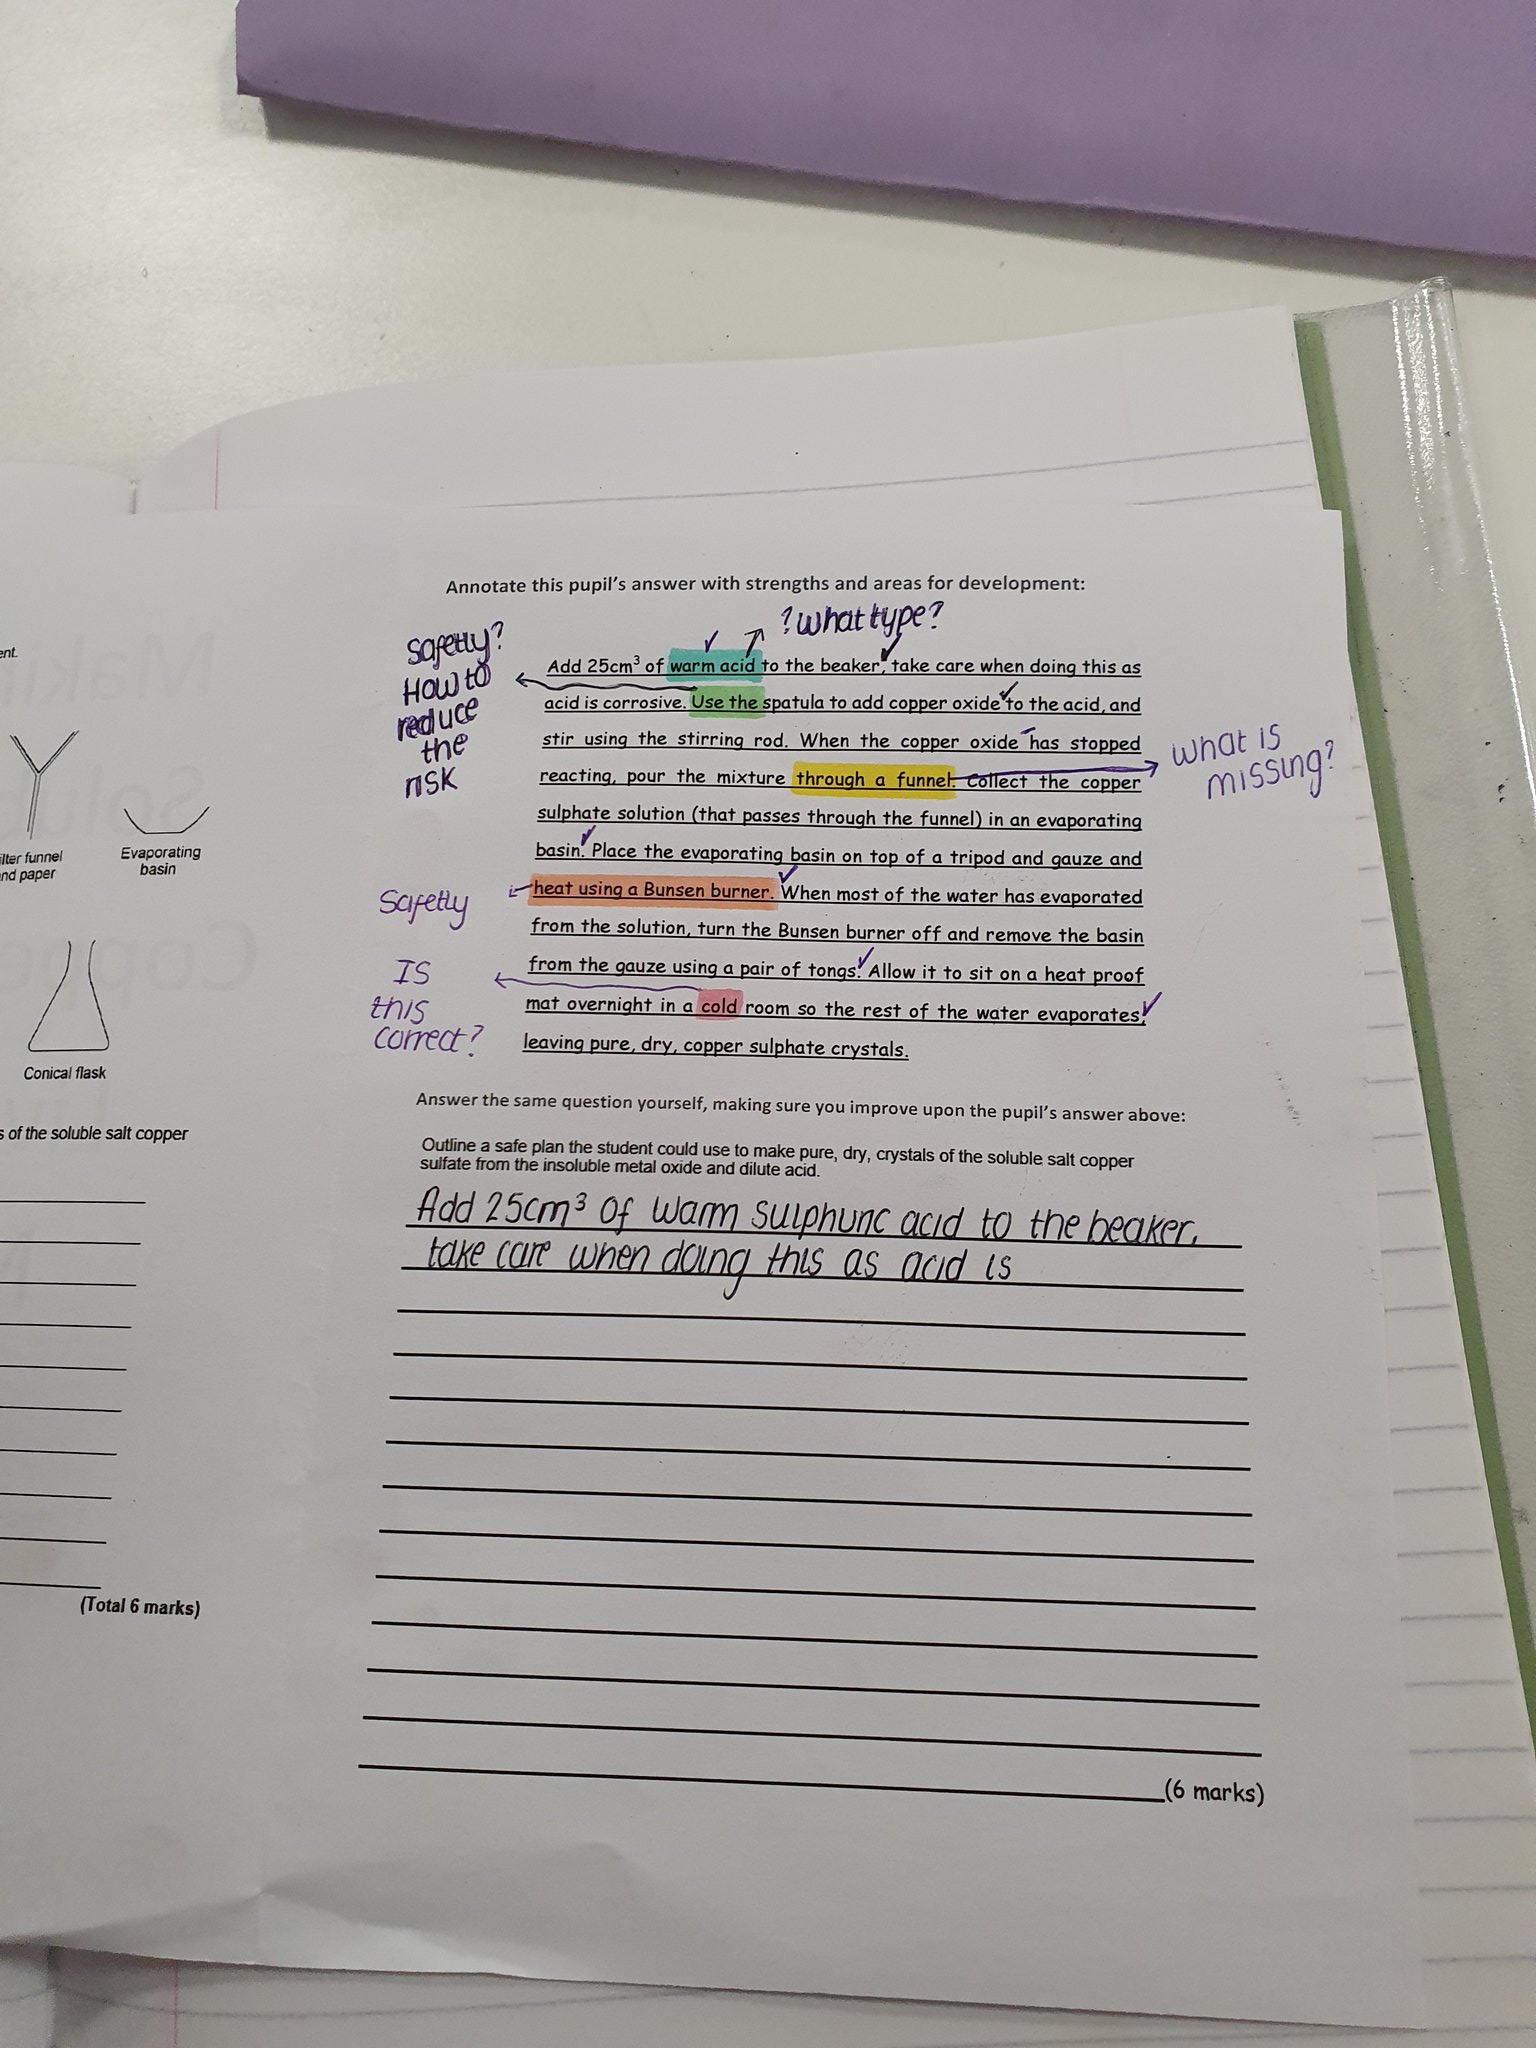 ent.
ilter funnel
nd paper
Evaporating
basin
Conical flask
s of the soluble salt copper
(Total 6 marks)
Annotate this pupil's answer with strengths and areas for development:
?what type?
Safetly?
How to
reduce
the
risk
Add 25cm³ of warm acid to the beaker, take care when doing this as
acid is corrosive. Use the spatula to add copper oxide to the acid, and
stir using the stirring rod. When the copper oxide has stopped
reacting, pour the mixture through a funnel. Collect the copper
sulphate solution (that passes through the funnel) in an evaporating
basin. Place the evaporating basin on top of a tripod and gauze and
heat using a Bunsen burner. When most of the water has evaporated
from the solution, turn the Bunsen burner off and remove the basin
from the gauze using a pair of tongs. Allow it to sit on a heat proof
mat overnight in a cold room so the rest of the water evaporates,
leaving pure, dry, copper sulphate crystals.
what is
missing?
Safetly
Is
this
correct?
Answer the same question yourself, making sure you improve upon the pupil's answer above:
Outline a safe plan the student could use to make pure, dry, crystals of the soluble salt copper
sulfate from the insoluble metal oxide and dilute acid.
Add 25cm³ of warm sulphuric acid to the beaker,
take care when doing this as acid is
(6 marks)